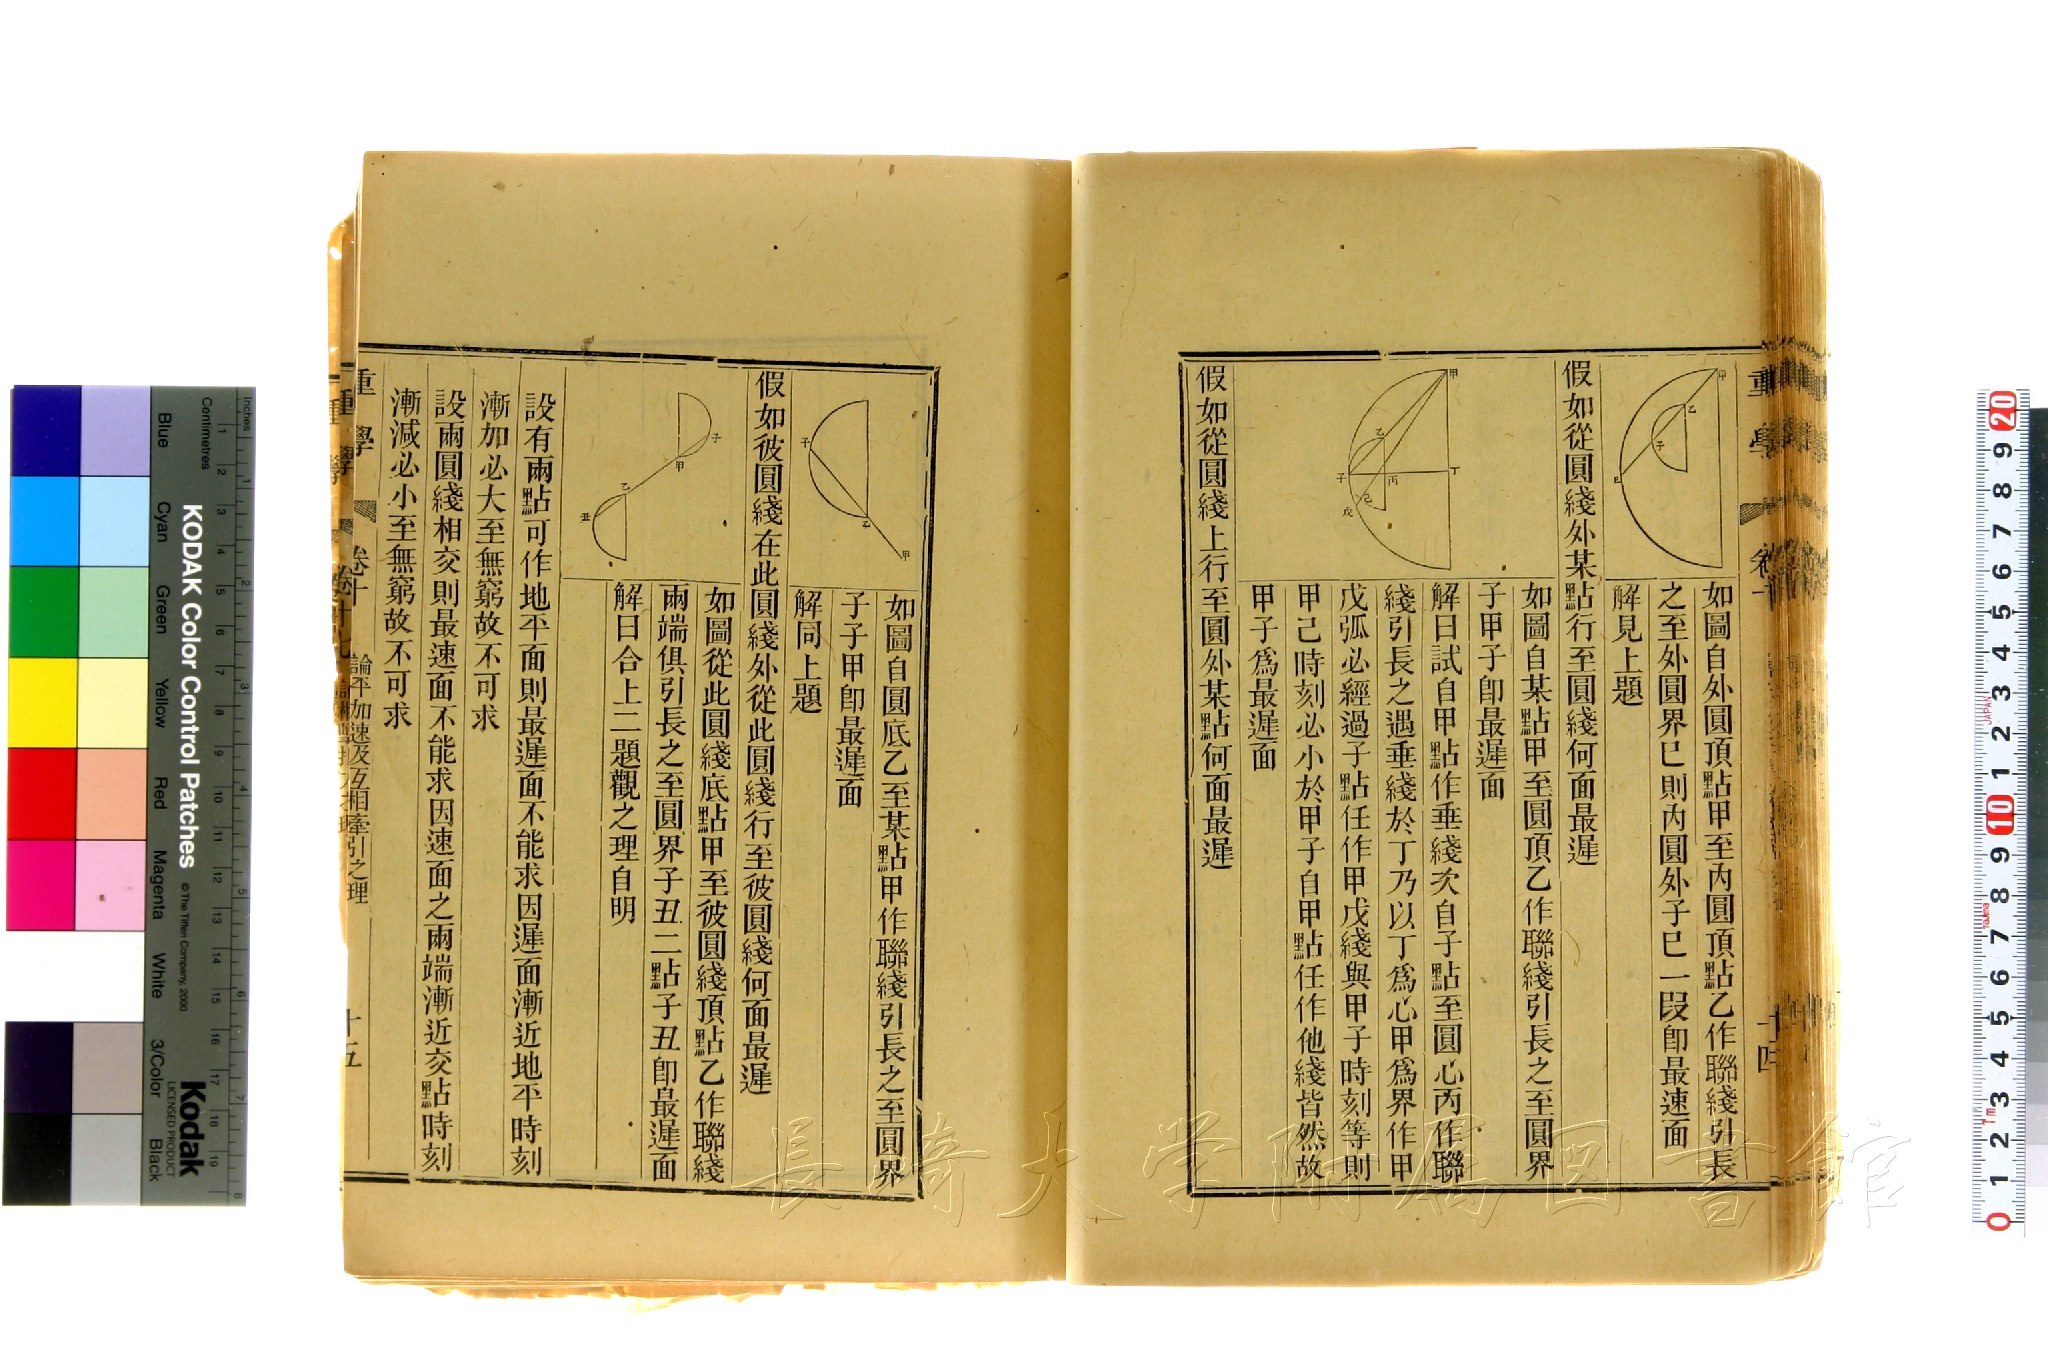 如圖自外圓頂點甲至內圓頂點乙作聯綫引長
之至外圓界巳則內圓外子巳一段卽最速面
解見上題
假如從圓綫外某點行至圓綫何面最遲
如圖自某點甲至圓頂乙作聯綫引長之至圓界
子甲子卽最遲面
解曰試自甲點作垂綫次自子點至圓心丙作聯
綫引長之遇垂綫於丁乃以丁爲心甲爲界作甲
戊弧必經過子點任作甲戊綫與甲子時刻等則
甲己時刻必小於甲子自甲點任作他綫皆然故
甲子爲最遲面
假如從圓綫上行至圓外某點何面最遲
如圖自圓底乙至某點甲作聯綫引長之至圓界
子子甲卽最遲面
解同上題
假如彼圓綫在此圓綫外從此圓綫行至彼圓綫何面最遲
如圖從此圓綫底點甲至彼圓綫頂點乙作聯綫
兩端俱引長之至圓界子丑二點子丑卽最遲面
解曰合上二題觀之理自明
設有兩點可作地平面則最遲面不能求因遲面漸近地平時刻
漸加必大至無窮故不可求
設兩圓綫相交則最速面不能求因速面之兩端漸近交點時刻
漸減必小至無窮故不可求
重學 卷十 論平加速及互相牽引之理 十五
重學
十四
甲
乙
子
巳
甲
乙
子
丙
丁
己
戊
子
乙
甲
子
甲
乙
丑
長崎大学附属図書館
KODAK Color Control Patches
© The Tiffen Company, 2000
Kodak
LICENSED PRODUCT
Inches
Centimetres
Blue
Cyan
Green
Yellow
Red
Magenta
White
3/Color
Black
1 2 3 4 5 6 7 8
1 2 3 4 5 6 7 8 9 10 11 12 13 14 15 16 17 18 19
20 9 8 7 6 5 4 3 2 1 10 9 8 7 6 5 4 3 2 1 0
JAPAN